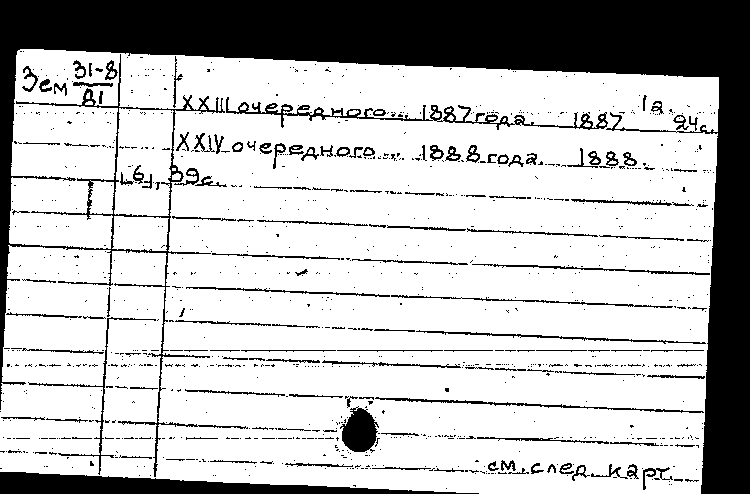 Зем 31-8
81
XXIII очередного... 1887 года. 1887. 1а. 24с.
XXIV очередного... 1888 года. 1888.
[6], 39с.
см. след. карт.